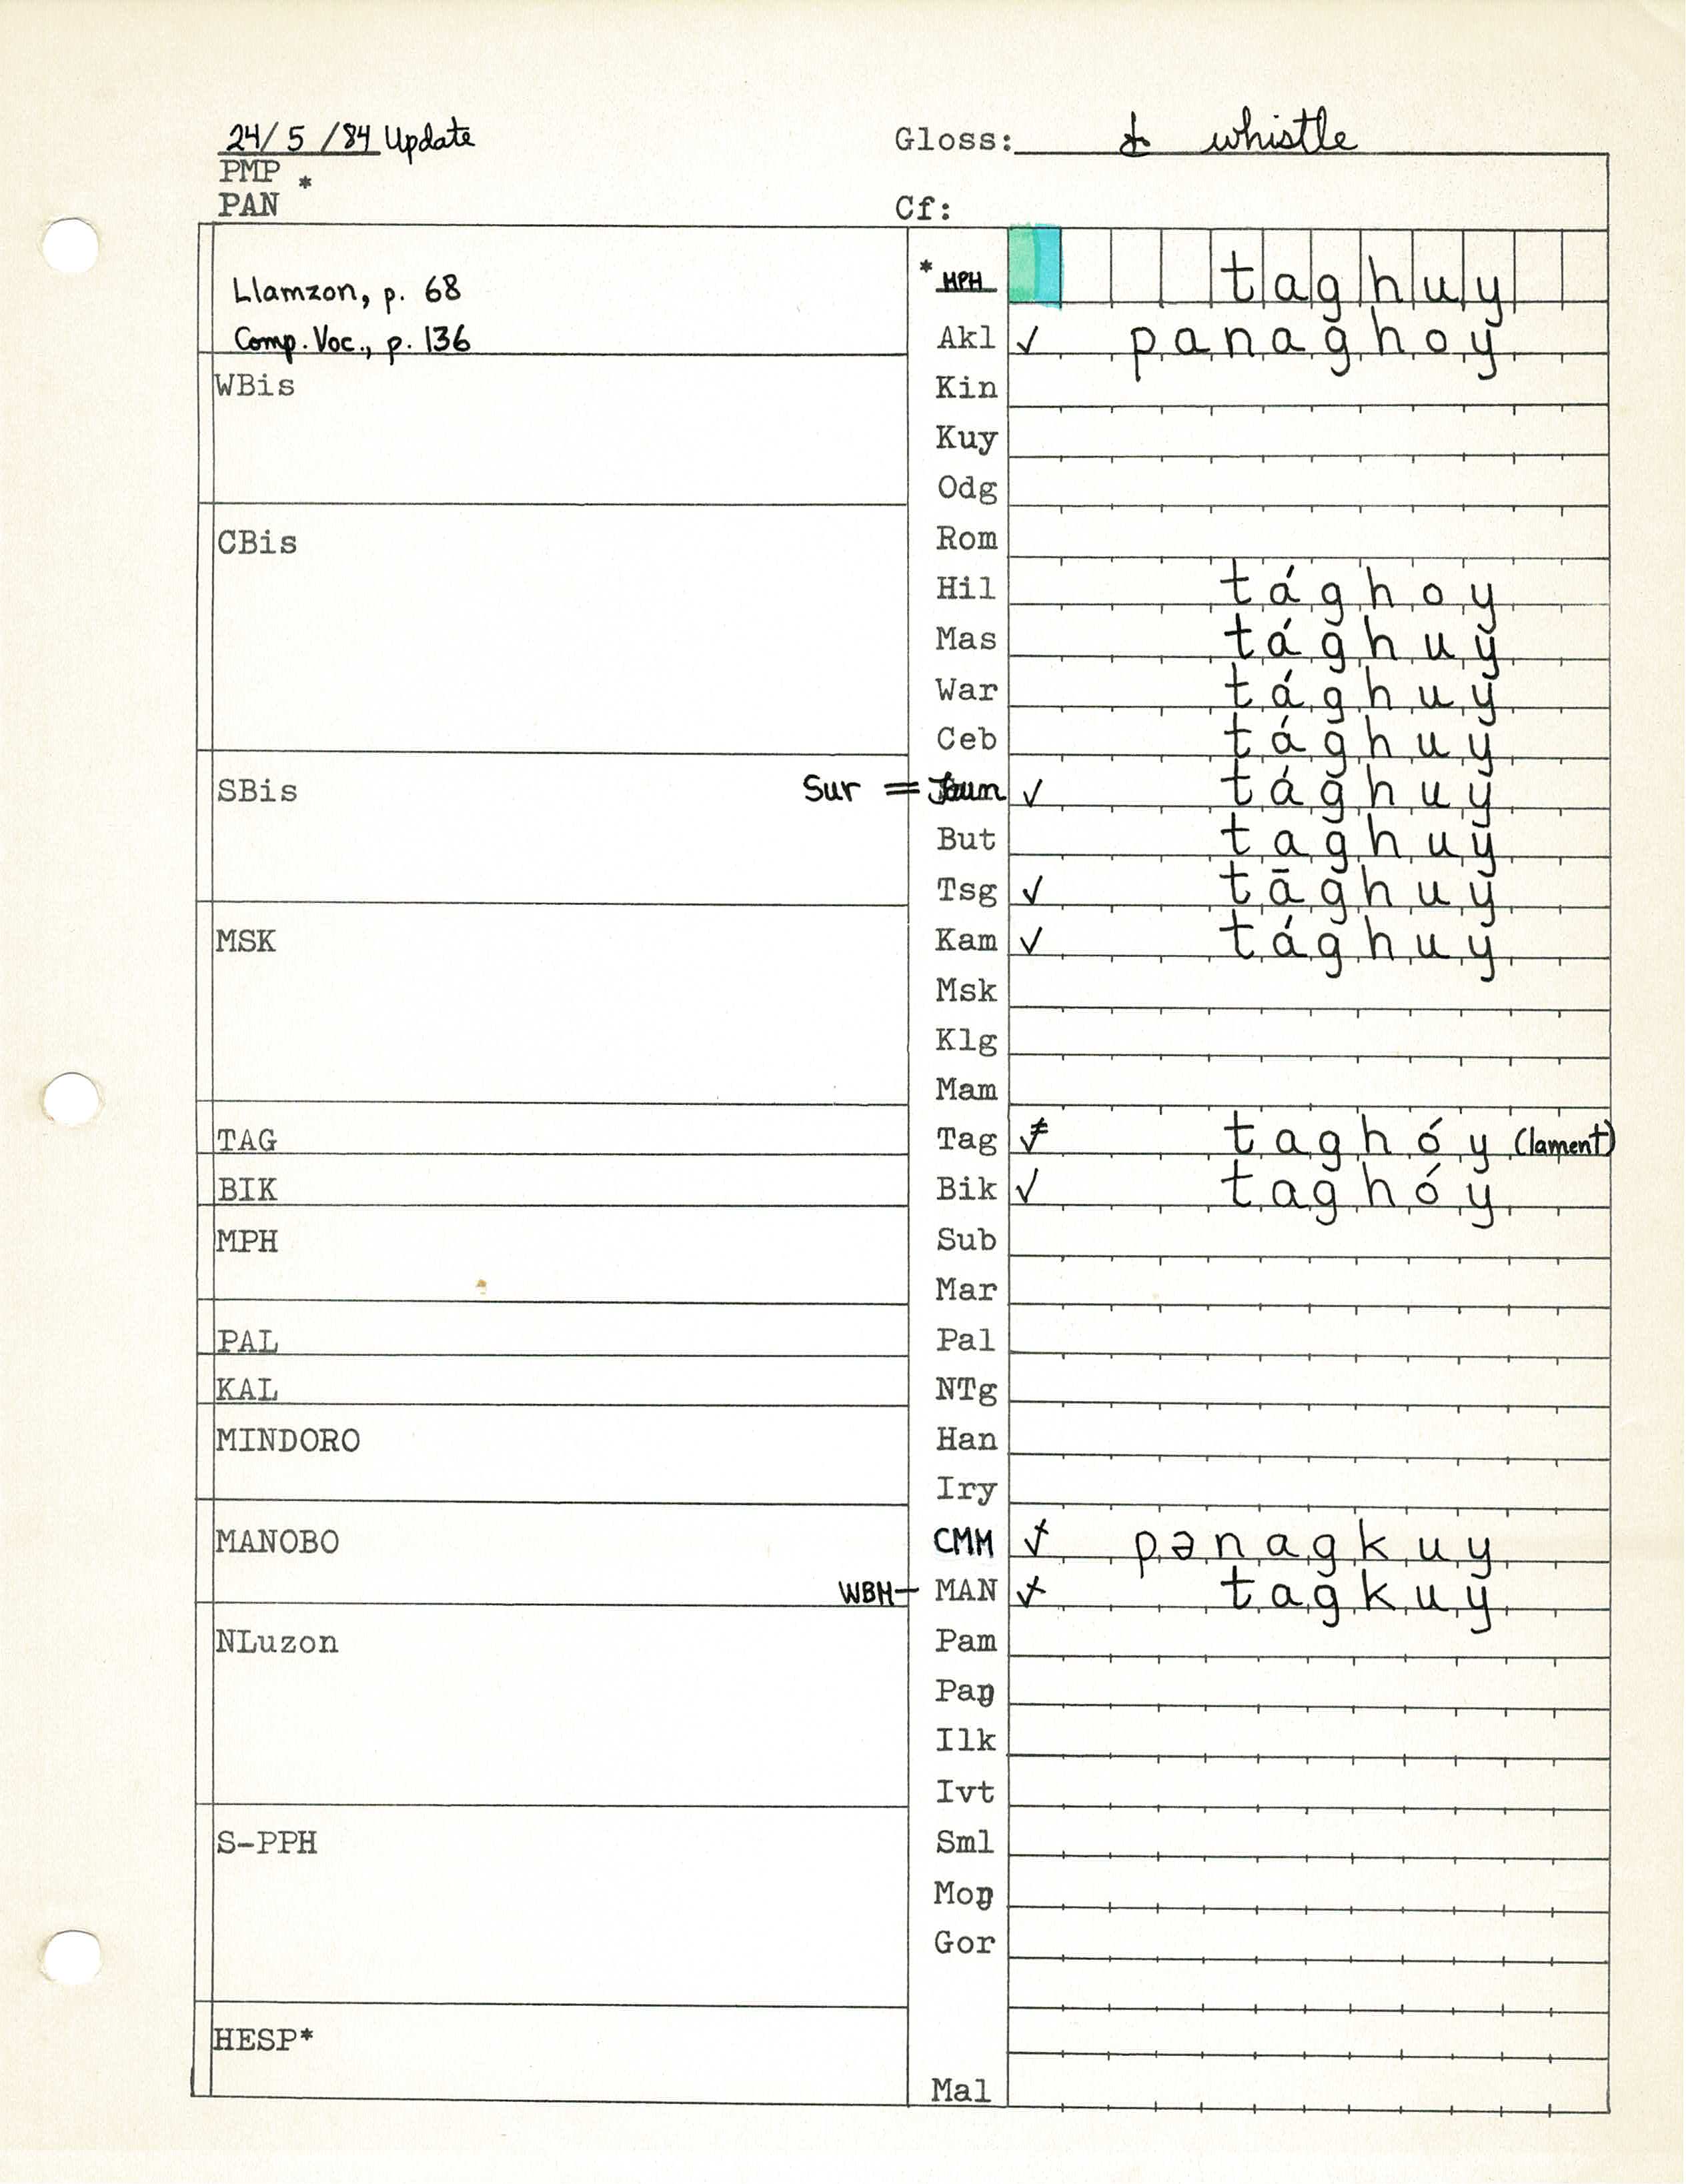 24/ 5 /84 Update
Gloss: whistle
PMP *
PAN
Cf:
Llamzon, p. 68
Comp. Voc., p. 136
* MPH taghuy
Akl ✓ panaghoy
WBis
Kin
Kuy
Odg
CBis
Rom
Hil tághoy
Mas tághuy
War tághuy
Ceb tághuy
SBis
Sur = Jaun ✓ tághuy
But taghuy
Tsg ✓ tāghuy
MSK
Kam ✓ tághuy
Msk
Klg
Mam
TAG
Tag ✓ taghóy (lament)
BIK
Bik ✓ taghóy
MPH
Sub
Mar
PAL
Pal
KAL
NTg
MINDORO
Han
Iry
MANOBO
CMM ✓ pənagkuy
WBM— MAN ✓ tagkuy
NLuzon
Pam
Paŋ
Ilk
Ivt
S-PPH
Sml
Moŋ
Gor
HESP*
Mal